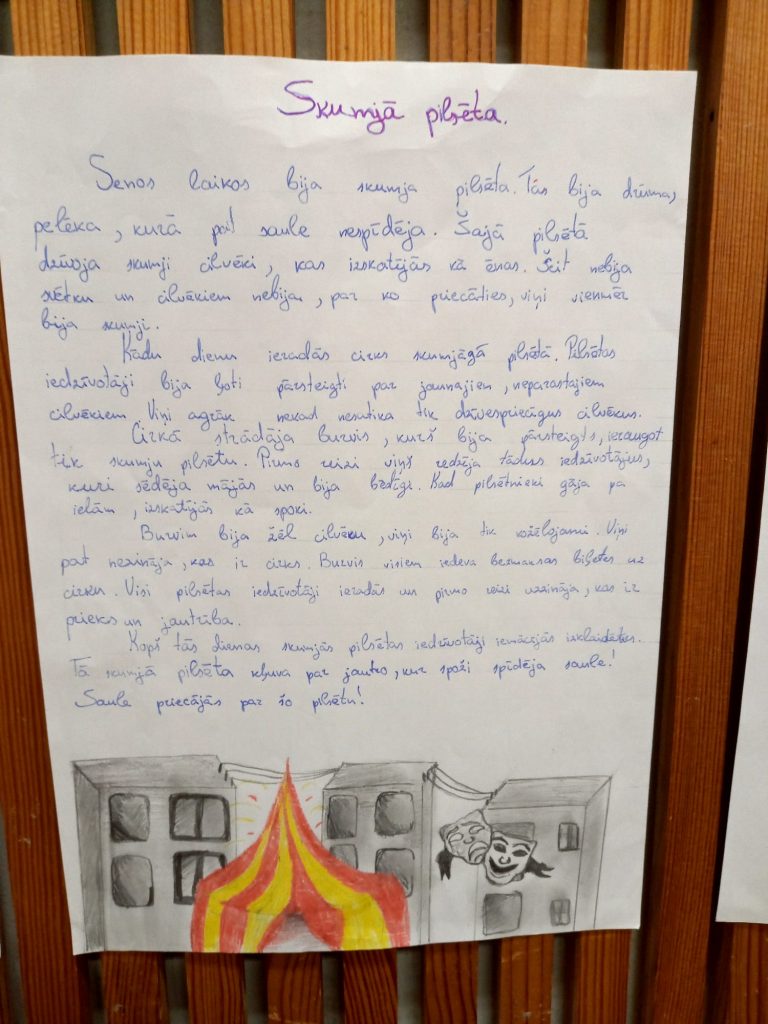 Skumjā pilsēta.
Senos laikos bija skumja pilsēta. Tās bija drūma,
pelēka, kurā pat saule nespīdēja. Šajā pilsētā
dzīvoja skumji cilvēki, kas izskatējās kā ēnas. Šeit nebija
svētku un cilvēkiem nebija, par ko priecāties, viņi vienmēr
bija skumji.
Kādu dienu ieradās cirks skumjāgā pilsētā. Pilsētas
iedzīvotāji bija ļoti pārsteigti par jaunajiem, neparastajiem
cilvēkiem. Viņi agrāk nekad nesatika tik dzīvespriecīgus cilvēkus.
Cirkā strādāja burvis, kurš bija pārsteigts, ieraugot
tik skumju pilsētu. Pirmo reizi viņš redzēja tādus iedzīvotājus,
kuri sēdēja mājās un bija bēdīgi. Kad pilsētnieki gāja pa
ielām, izskatījās kā spoki.
Burvim bija žēl cilvēku, viņi bija tik nožēlojami. Viņi
pat nezināja, kas ir cirks. Burvis visiem iedeva bezmaksas biļetes uz
cirku. Visi pilsētas iedzīvotāji ieradās un pirmo reizi uzzināja, kas ir
prieks un jautrība.
Kopš tās dienas skumjās pilsētas iedzīvotāji iemācījās izklaidēties.
Tā skumjā pilsēta kļuva par jautro, kur spoži spīdēja saule!
Saule priecājās par šo pilsētu!